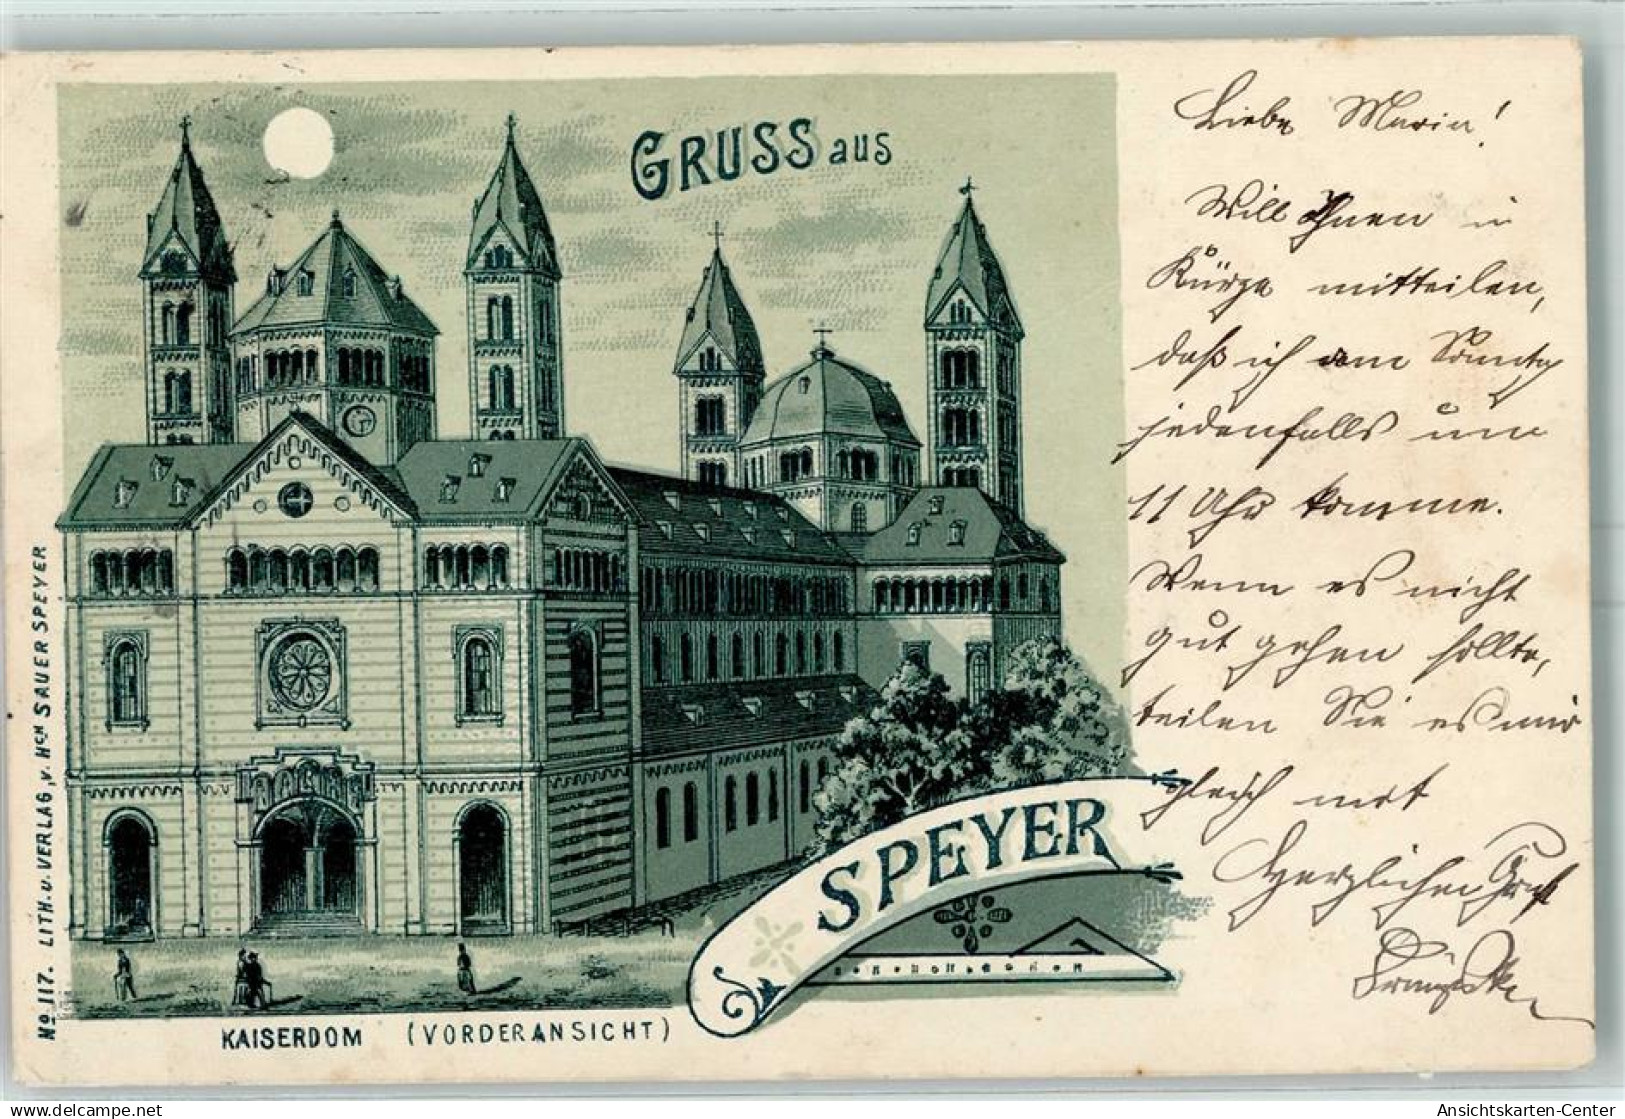 GRUSS aus
SPEYER
KAISERDOM (VORDERANSICHT)
No 117. LITH. u. VERLAG, v. Hch SAUER SPEYER
Liebe Maria!
Will Ihnen in
Kürze mitteilen,
daß ich am Sonntag
jedenfalls um
11 Uhr komme.
Wenn es nicht
gut gehen sollte,
teilen Sie es mir
gleich mit
Herzlichen Gruß
Ansichtskarten-Center
delcampe.net